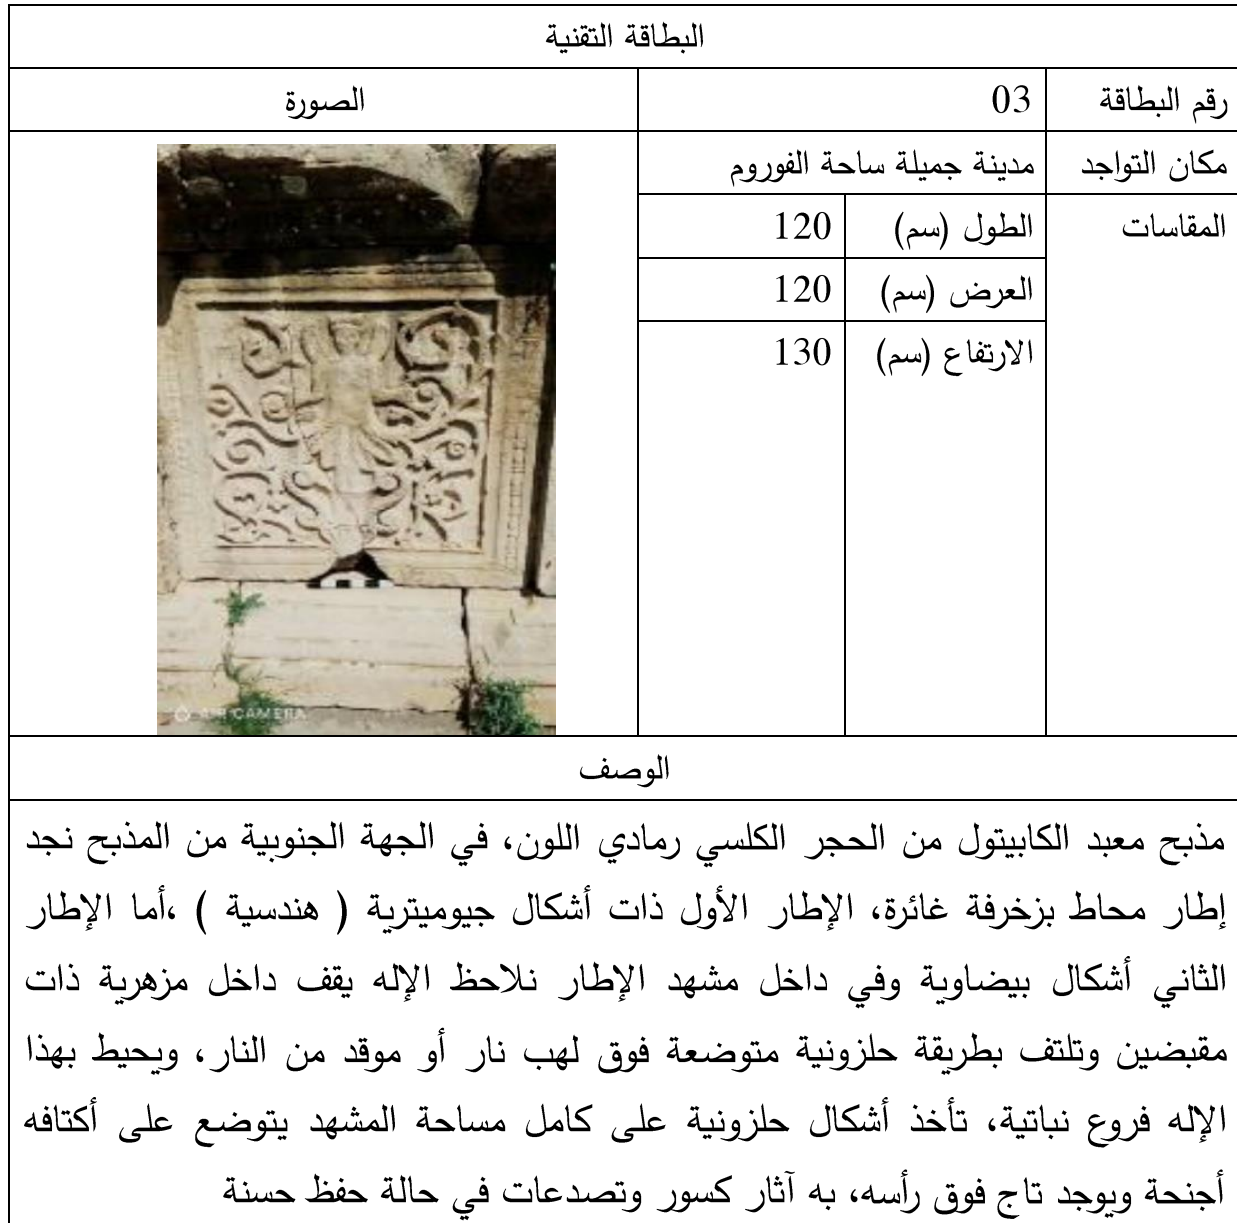 البطاقة التقنية
رقم البطاقة 03 الصورة
مكان التواجد مدينة جميلة ساحة الفوروم
المقاسات الطول (سم) 120
العرض (سم) 120
الارتفاع (سم) 130
CAMERA
الوصف
مذبح معبد الكابيتول من الحجر الكلسي رمادي اللون، في الجهة الجنوبية من المذبح نجد
إطار محاط بزخرفة غائرة، الإطار الأول ذات أشكال جيوميترية ( هندسية ) ،أما الإطار
الثاني أشكال بيضاوية وفي داخل مشهد الإطار نلاحظ الإله يقف داخل مزهرية ذات
مقبضين وتلتف بطريقة حلزونية متوضعة فوق لهب نار أو موقد من النار، ويحيط بهذا
الإله فروع نباتية، تأخذ أشكال حلزونية على كامل مساحة المشهد يتوضع على أكتافه
أجنحة ويوجد تاج فوق رأسه، به آثار كسور وتصدعات في حالة حفظ حسنة